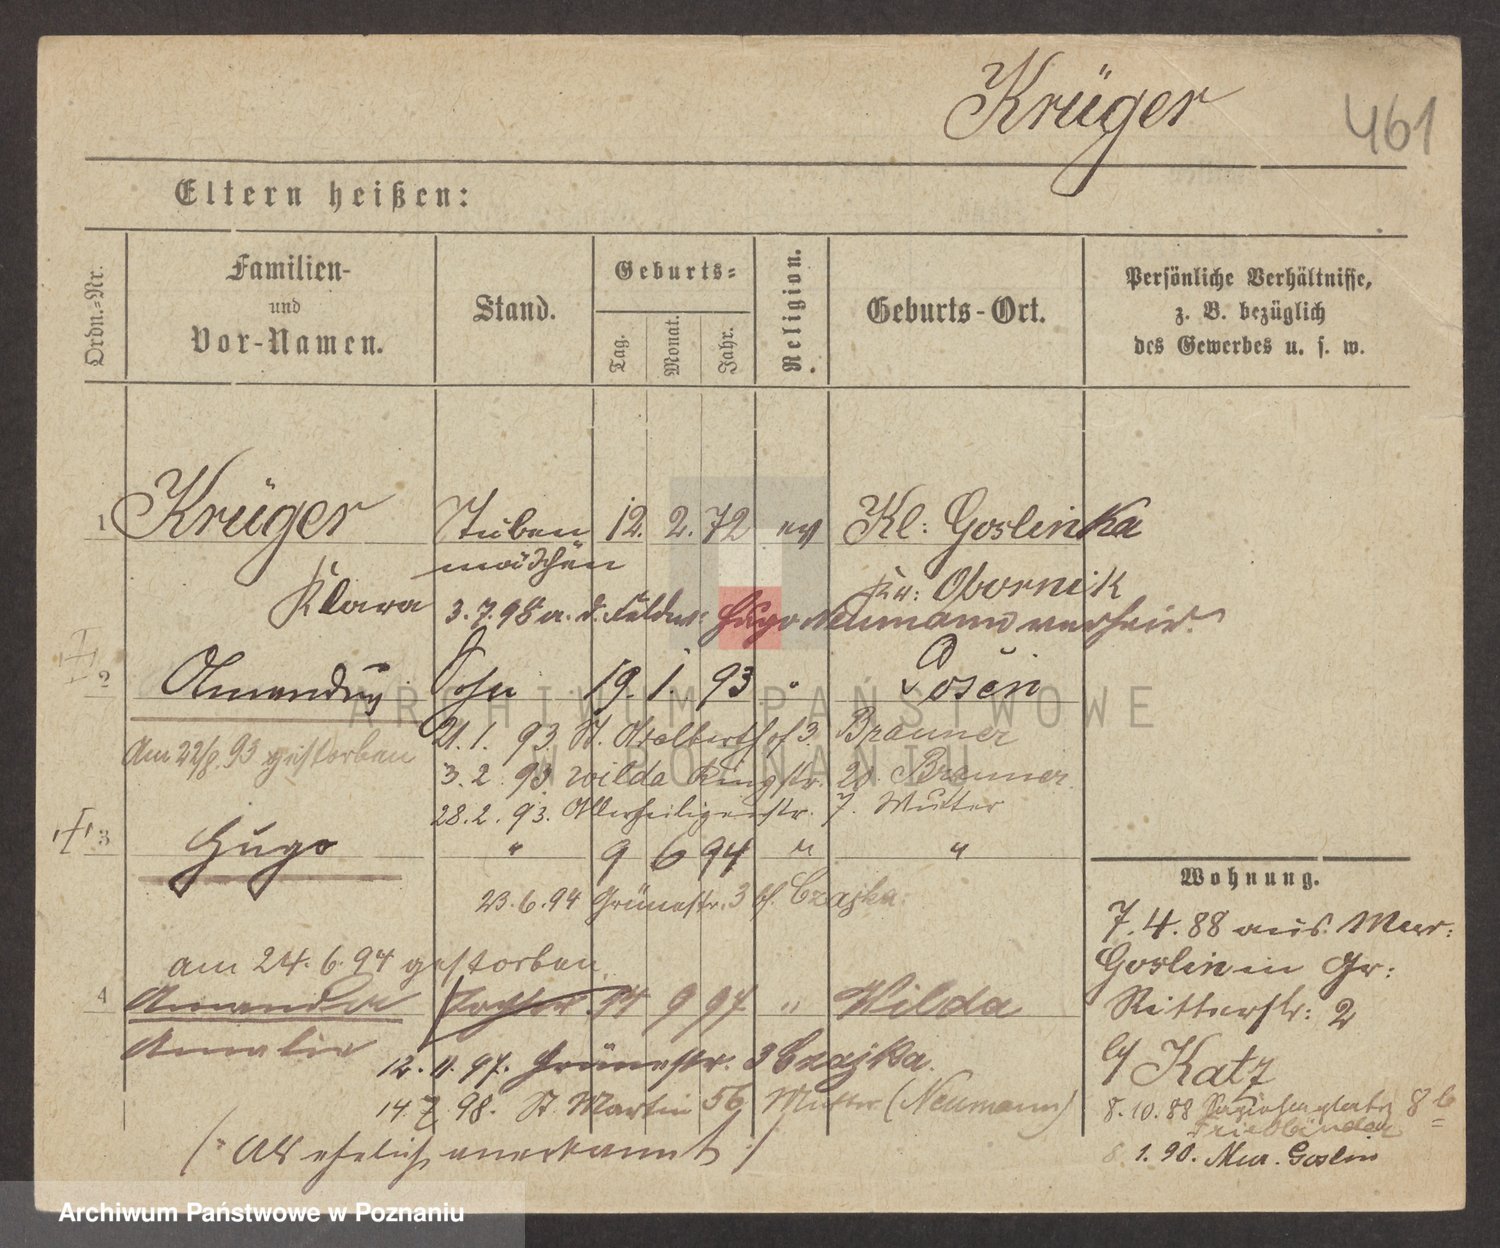 Krüger
461
Eltern heißen:
Ordn.-Nr.
Familien-
und
Vor-Namen.
Stand.
Geburts-
Tag.
Monat.
Jahr.
Religion.
Geburts-Ort.
Persönliche Verhältnisse,
z. B. bezüglich
des Gewerbes u. s. w.
1 Krüger Stuben 12. 2. 72 ev Kl: Goslinka
mädchen
Klara Kr: Obornik
3.7.98 a. d. Hugo Neumann verheir.
2 Amandus Sohn 19. 1. 93 " Posen
21. 1. 93 St. Adalberthof 3. Brauner
Am 22/8. 93 gestorben
3. 2. 93. Wilda Ringstr. 20. Brauner
28. 2. 93. Allerheiligenstr. 7. Mutter
3 Hugo " 9 6 94 " "
23. 6. 94 Grünestr. 3 bf. Czajka.
am 24. 6. 94 gestorben
4 Amanda Tochter 14 9 97 " Wilda
Amalie
12. 11. 97. Grünestr. 3 Czajka.
14. 7 98. St. Martin 56 Mutter (Neumann)
(: Als ehelich anerkannt :)
Wohnung.
7. 4. 88 aus Mur:
Goslin in Gr:
Ritterstr: 2
Katz
8. 10. 88 Sapiehaplatz 8 b
Friedländer
8. 1. 90. Mur. Goslin
ARCHIWUM PAŃSTWOWE
W POZNANIU
Archiwum Państwowe w Poznaniu